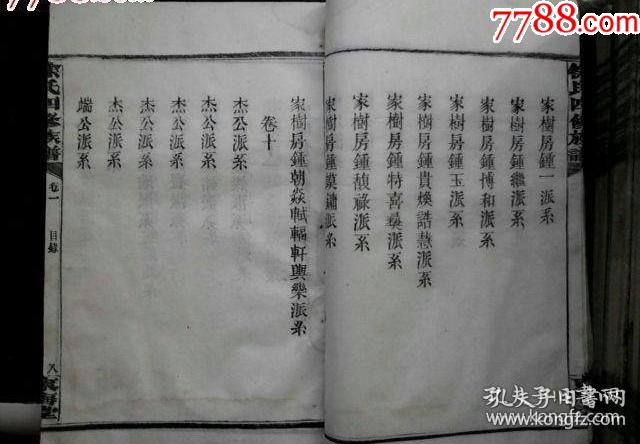 7788.com
7788.com
家樹房鍾一派系
家樹房鍾繼派系
家樹房鍾博和派系
家樹房鍾玉派系
家樹房鍾貴煥誥慧派系
家樹房鍾特喜㬎派系
家樹房鍾馥祿派系
家樹房鍾謨鏞派系
家樹房鍾朝焱軾輻軒輿樂派系
卷十
杰公派系
杰公派系
杰公派系
杰公派系
杰公派系
端公派系
氏四修族譜
卷一
目錄
八
孔夫子旧书网
www.kongfz.com